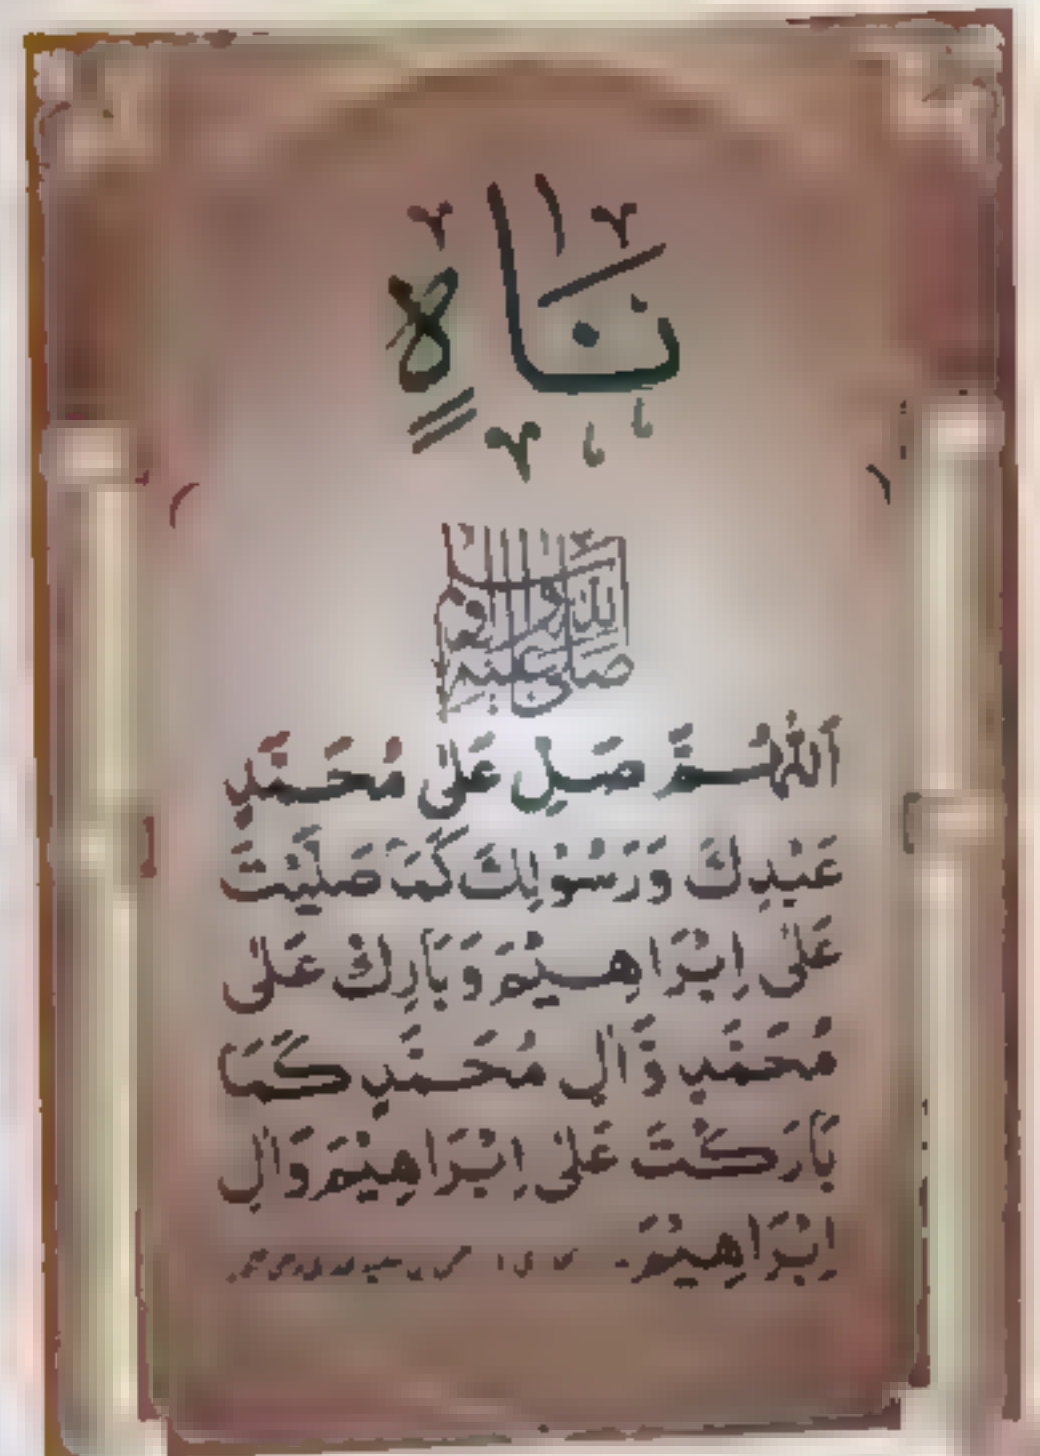 نَاهٍ
صلى الله عليه وآله وسلم
اَللّٰهُمَّ صَلِّ عَلٰى مُحَمَّدٍ
عَبْدِكَ وَرَسُوْلِكَ كَمَا صَلَّيْتَ
عَلٰى اِبْرَاهِيْمَ وَبَارِكْ عَلٰى
مُحَمَّدٍ وَّاٰلِ مُحَمَّدٍ كَمَا
بَارَكْتَ عَلٰى اِبْرَاهِيْمَ وَاٰلِ
اِبْرَاهِيْمَ۔